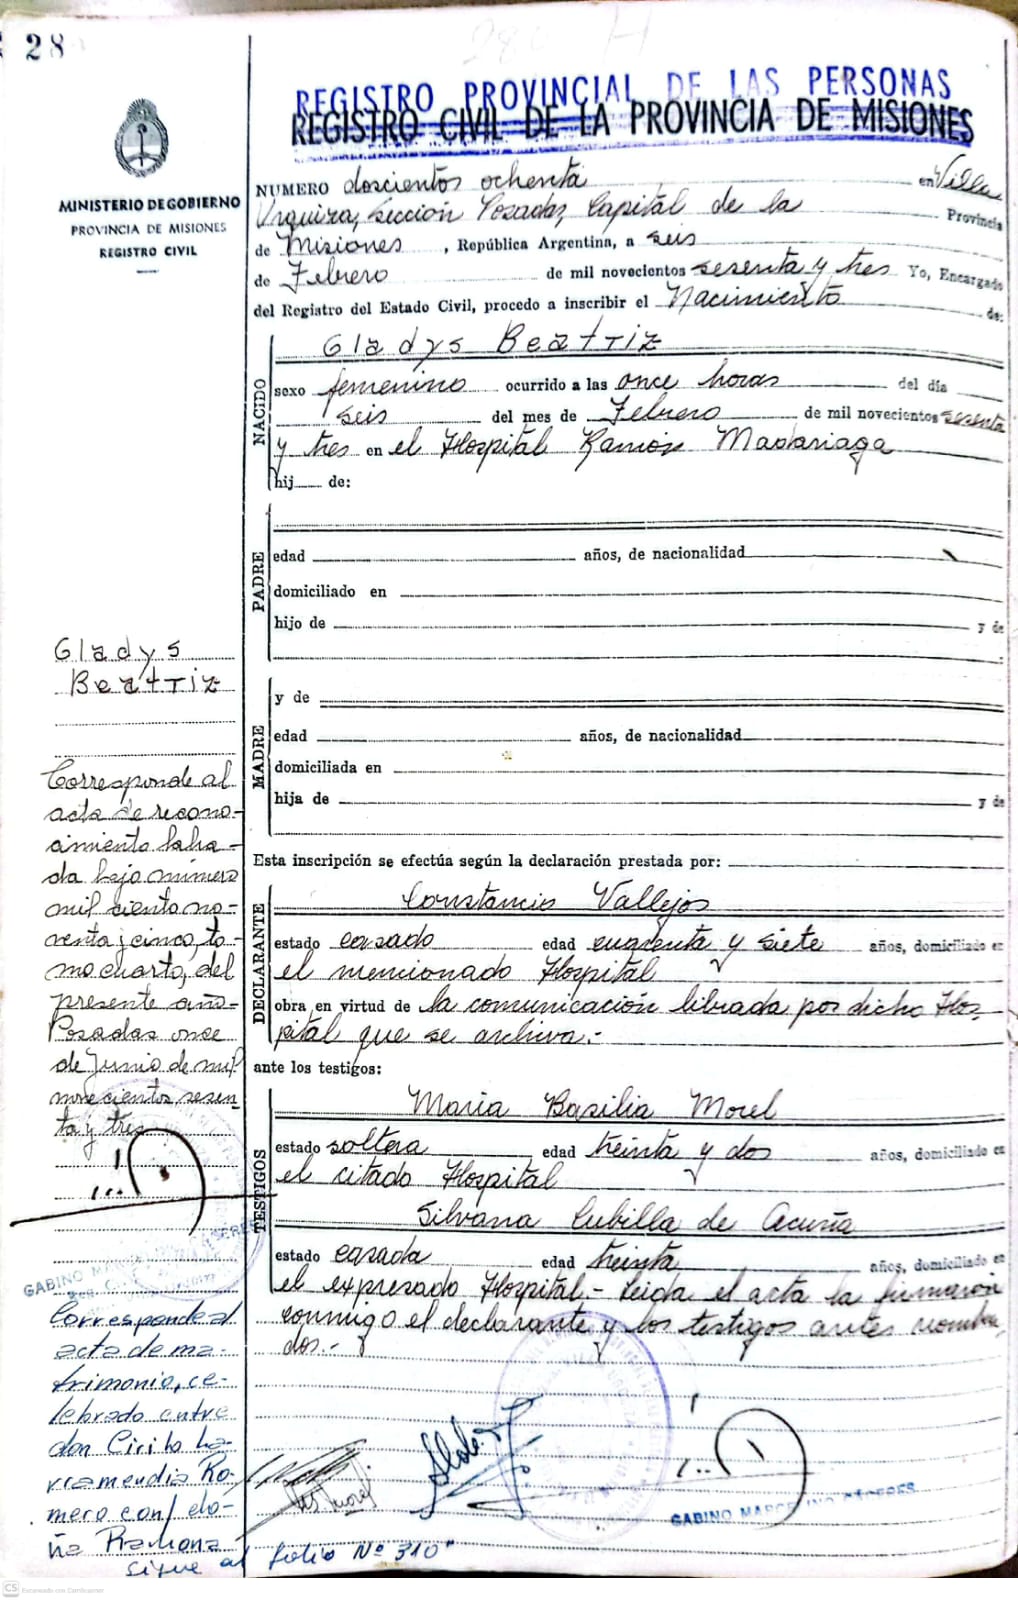 28
REGISTRO PROVINCIAL DE LAS PERSONAS
REGISTRO CIVIL DE LA PROVINCIA DE MISIONES
MINISTERIO DE GOBIERNO
PROVINCIA DE MISIONES
REGISTRO CIVIL
NUMERO doscientos ochenta en Villa
Urquiza, sección Posadas, Capital de la Provincia
de Misiones, República Argentina, a seis
de Febrero de mil novecientos sesenta y tres Yo, Encargado
del Registro del Estado Civil, procedo a inscribir el Nacimiento de:
NACIDO
Gladys Beatriz
sexo femenino ocurrido a las once horas del día
seis del mes de Febrero de mil novecientos sesenta
y tres en el Hospital Ramón Madariaga
hij de:
PADRE
edad años, de nacionalidad
domiciliado en
hijo de y de
MADRE
y de
edad años, de nacionalidad
domiciliada en
hija de y de
Esta inscripción se efectúa según la declaración prestada por:
DECLARANTE
Constancio Vallejos
estado casado edad cuarenta y siete años, domiciliado en
el mencionado Hospital
obra en virtud de la comunicación librada por dicho Hos-
pital que se archiva.-
ante los testigos:
TESTIGOS
Maria Basilia Morel
estado soltera edad treinta y dos años, domiciliado en
el citado Hospital
Silvana Cubilla de Acuña
estado casada edad treinta años, domiciliado en
el expresado Hospital - Leida el acta la firmaron
conmigo el declarante y los testigos antes nombra-
dos.-
GABINO MARCELINO CÁCERES
Gladys
Beatriz
Corresponde al
acta de recono-
cimiento labra-
da bajo número
mil ciento no-
venta y cinco, to-
mo cuarto, del
presente año-
Posadas once
de Junio de mil
novecientos sesen
ta y tres
GABINO
Corresponde al
acta de ma-
trimonio, ce-
lebrado entre
don Cirilo La-
rramendia Ro-
mero con/ do-
ña Ramona
sigue al folio Nº 310"
CS Escaneado con CamScanner